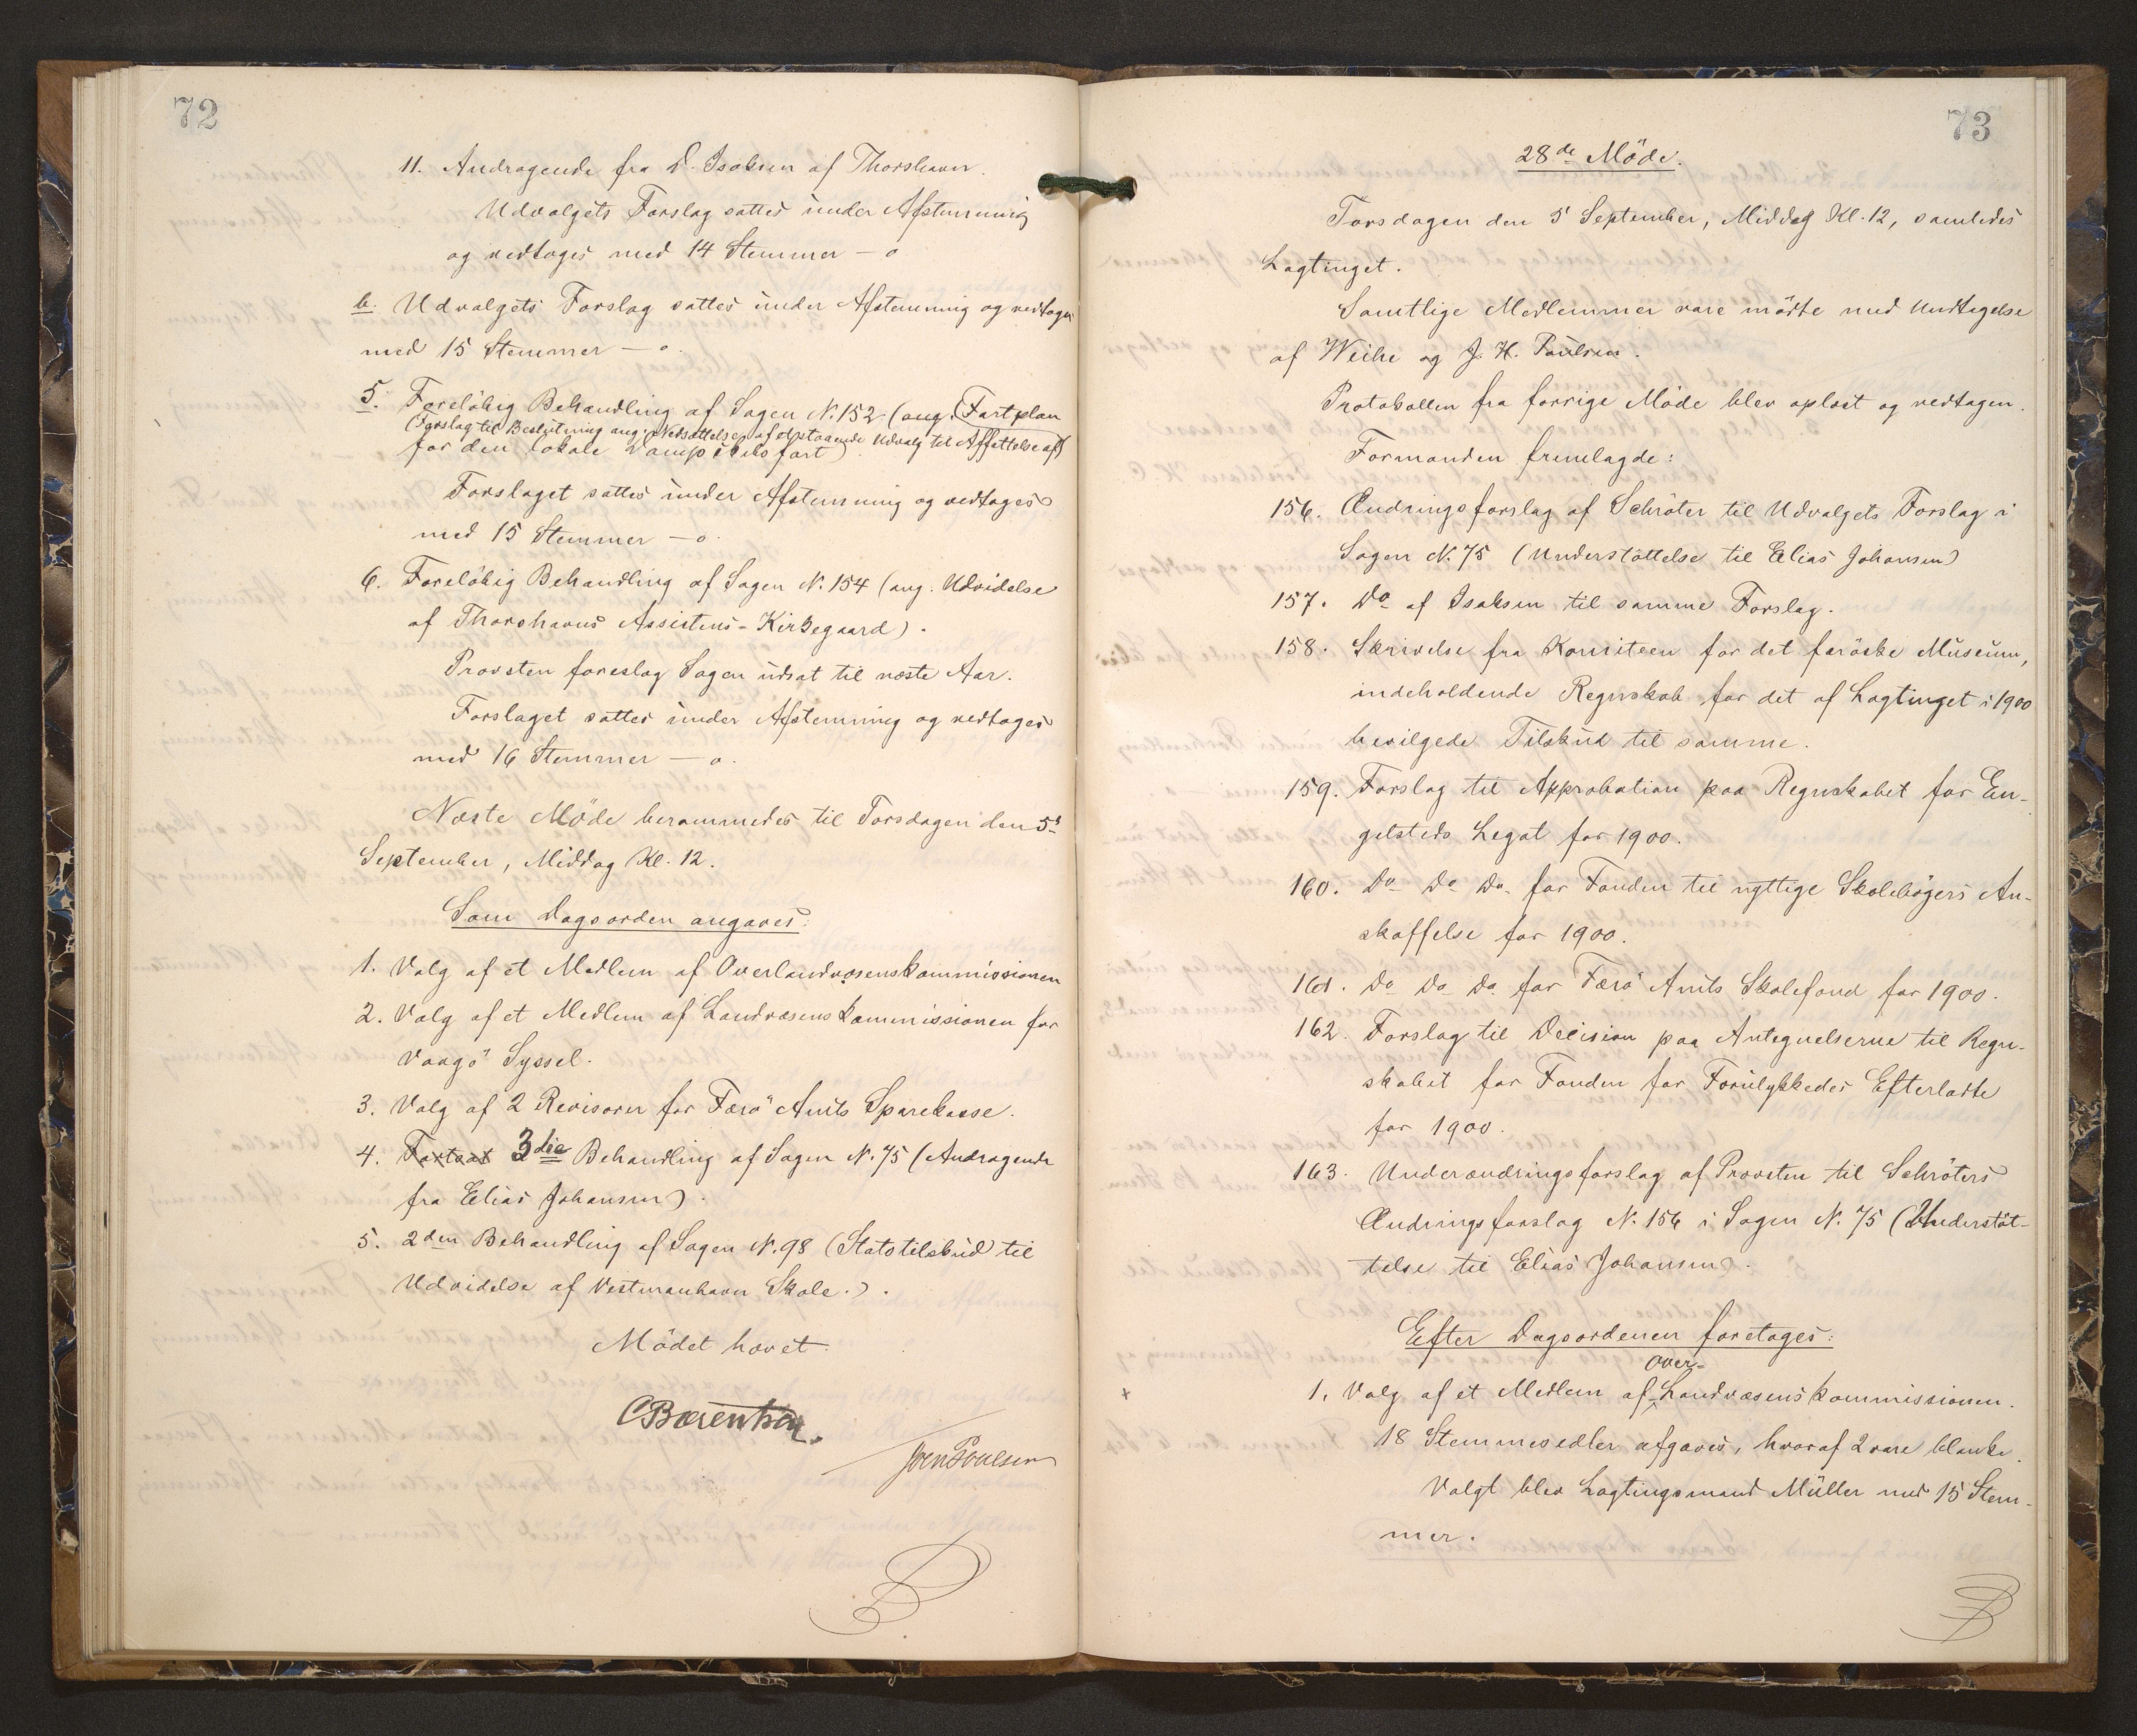 72
11. Andragende fra D. Isaksen af Thorshavn.
Udvalgets Forslag sattes under Afstemning
og vedtoges med 14 Stemmer — o
b. Udvalgets Forslag sattes under Afstemning og vedtoges
med 15 Stemmer — o.
5. Foreløbig Behandling af Sagen N. 152 (ang. Fartplan
(Forslag til Beslutning ang. Nedsættelse af et staaende Udvalg til Affattelse af)
for den lokale Dampskibsfart)
Forslaget sattes under Afstemning og vedtoges
med 15 Stemmer — o.
6. Foreløbig Behandling af Sagen N. 154 (ang. Udvidelse
af Thorshavns Assistens-Kirkegaard).
Provsten foreslog Sagen udsat til næste Aar.
Forslaget sattes under Afstemning og vedtoges
med 16 Stemmer — o.
Næste Möde berammedes til Torsdagen den 5'
September, Middag Kl. 12.
Som Dagsorden angaves:
1. Valg af et Medlem af Overlandvæsenskommissionen
2. Valg af et Medlem af Landvæsenskommissionen for
Vaagö Syssel.
3. Valg af 2 Revisorer for Færö Amts Sparekasse.
4. Fortsat 3die Behandling af Sagen N. 75 (Andragende
fra Elias Johansen).
5. 2den Behandling af Sagen N. 98 (Statstilskud til
Udvidelse af Vestmanhavn Skole.).
Mödet hævet.
CBærentsen.
Joen Poulsen
73
28de Möde.
Torsdagen den 5' September, Middag Kl. 12, samledes
Lagtinget.
Samtlige Medlemmer vare mödte med Undtagelse
af Weihe og J. H. Poulsen.
Protokollen fra forrige Möde blev oplæst og vedtagen.
Formanden fremlagde:
156. Ændringsforslag af Schröter til Udvalgets Forslag i
Sagen N. 75 (Understöttelse til Elias Johansen)
157. Do af Isaksen til samme Forslag.
158. Skrivelse fra Komiteen for det færöske Museum,
indeholdende Regnskab for det af Lagtinget i 1900
bevilgede Tilskud til samme.
159. Forslag til Approbation paa Regnskabet for En-
gelsteds Legat for 1900.
160. Do Do Do. for Fonden til nyttige Skolebögers An-
skaffelse for 1900.
161. Do Do Do. for Færö Amts Skolefond for 1900.
162. Forslag til Decision paa Antegnelserne til Regn-
skabet for Fonden for Forulykkedes Efterladte
for 1900.
163. Underændringsforslag af Provsten til Schröters
Ændringsforslag N. 156 i Sagen N. 75 (Understöt-
telse til Elias Johansen).
Efter Dagsordenen foretoges:
Over-
1. Valg af et Medlem af Landvæsenskommissionen.
18 Stemmesedler afgaves, hvoraf 2 vare blanke.
Valgt blev Lagtingsmand Müller med 15 Stem-
mer.